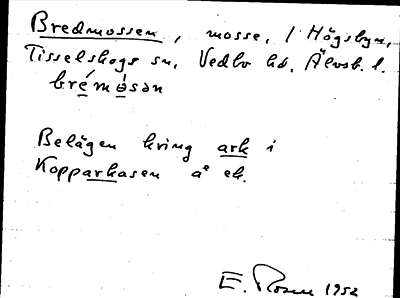 Bredmossen, mosse, / Högsbyn,
Tisselskogs sn, Vedbo hd, Älvsb. l.
brémò̱sən
Belägen kring ark i
Kopparkasen å ek.
E. Rosén 1952